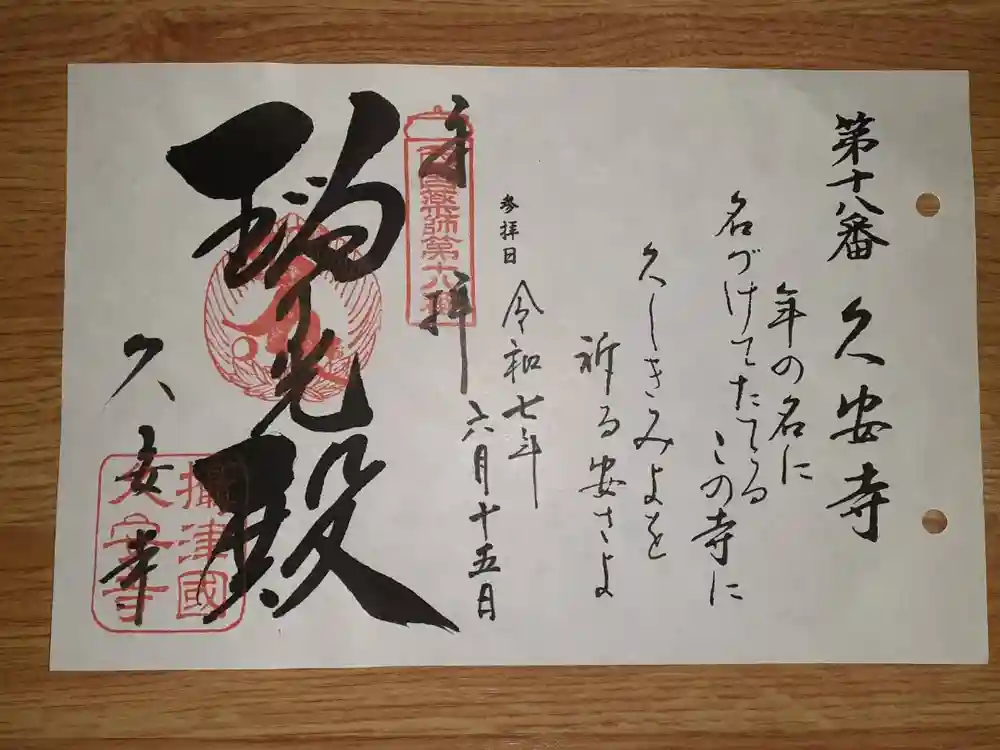 第十八番 久安寺
年の名に
名づけてたてる この寺に
久しきみよを
祈る安さよ
参拝日 令和七年
六月十五日
奉拝
西国薬師第十八番
瑠光殿
久安寺
摂津國
久安寺